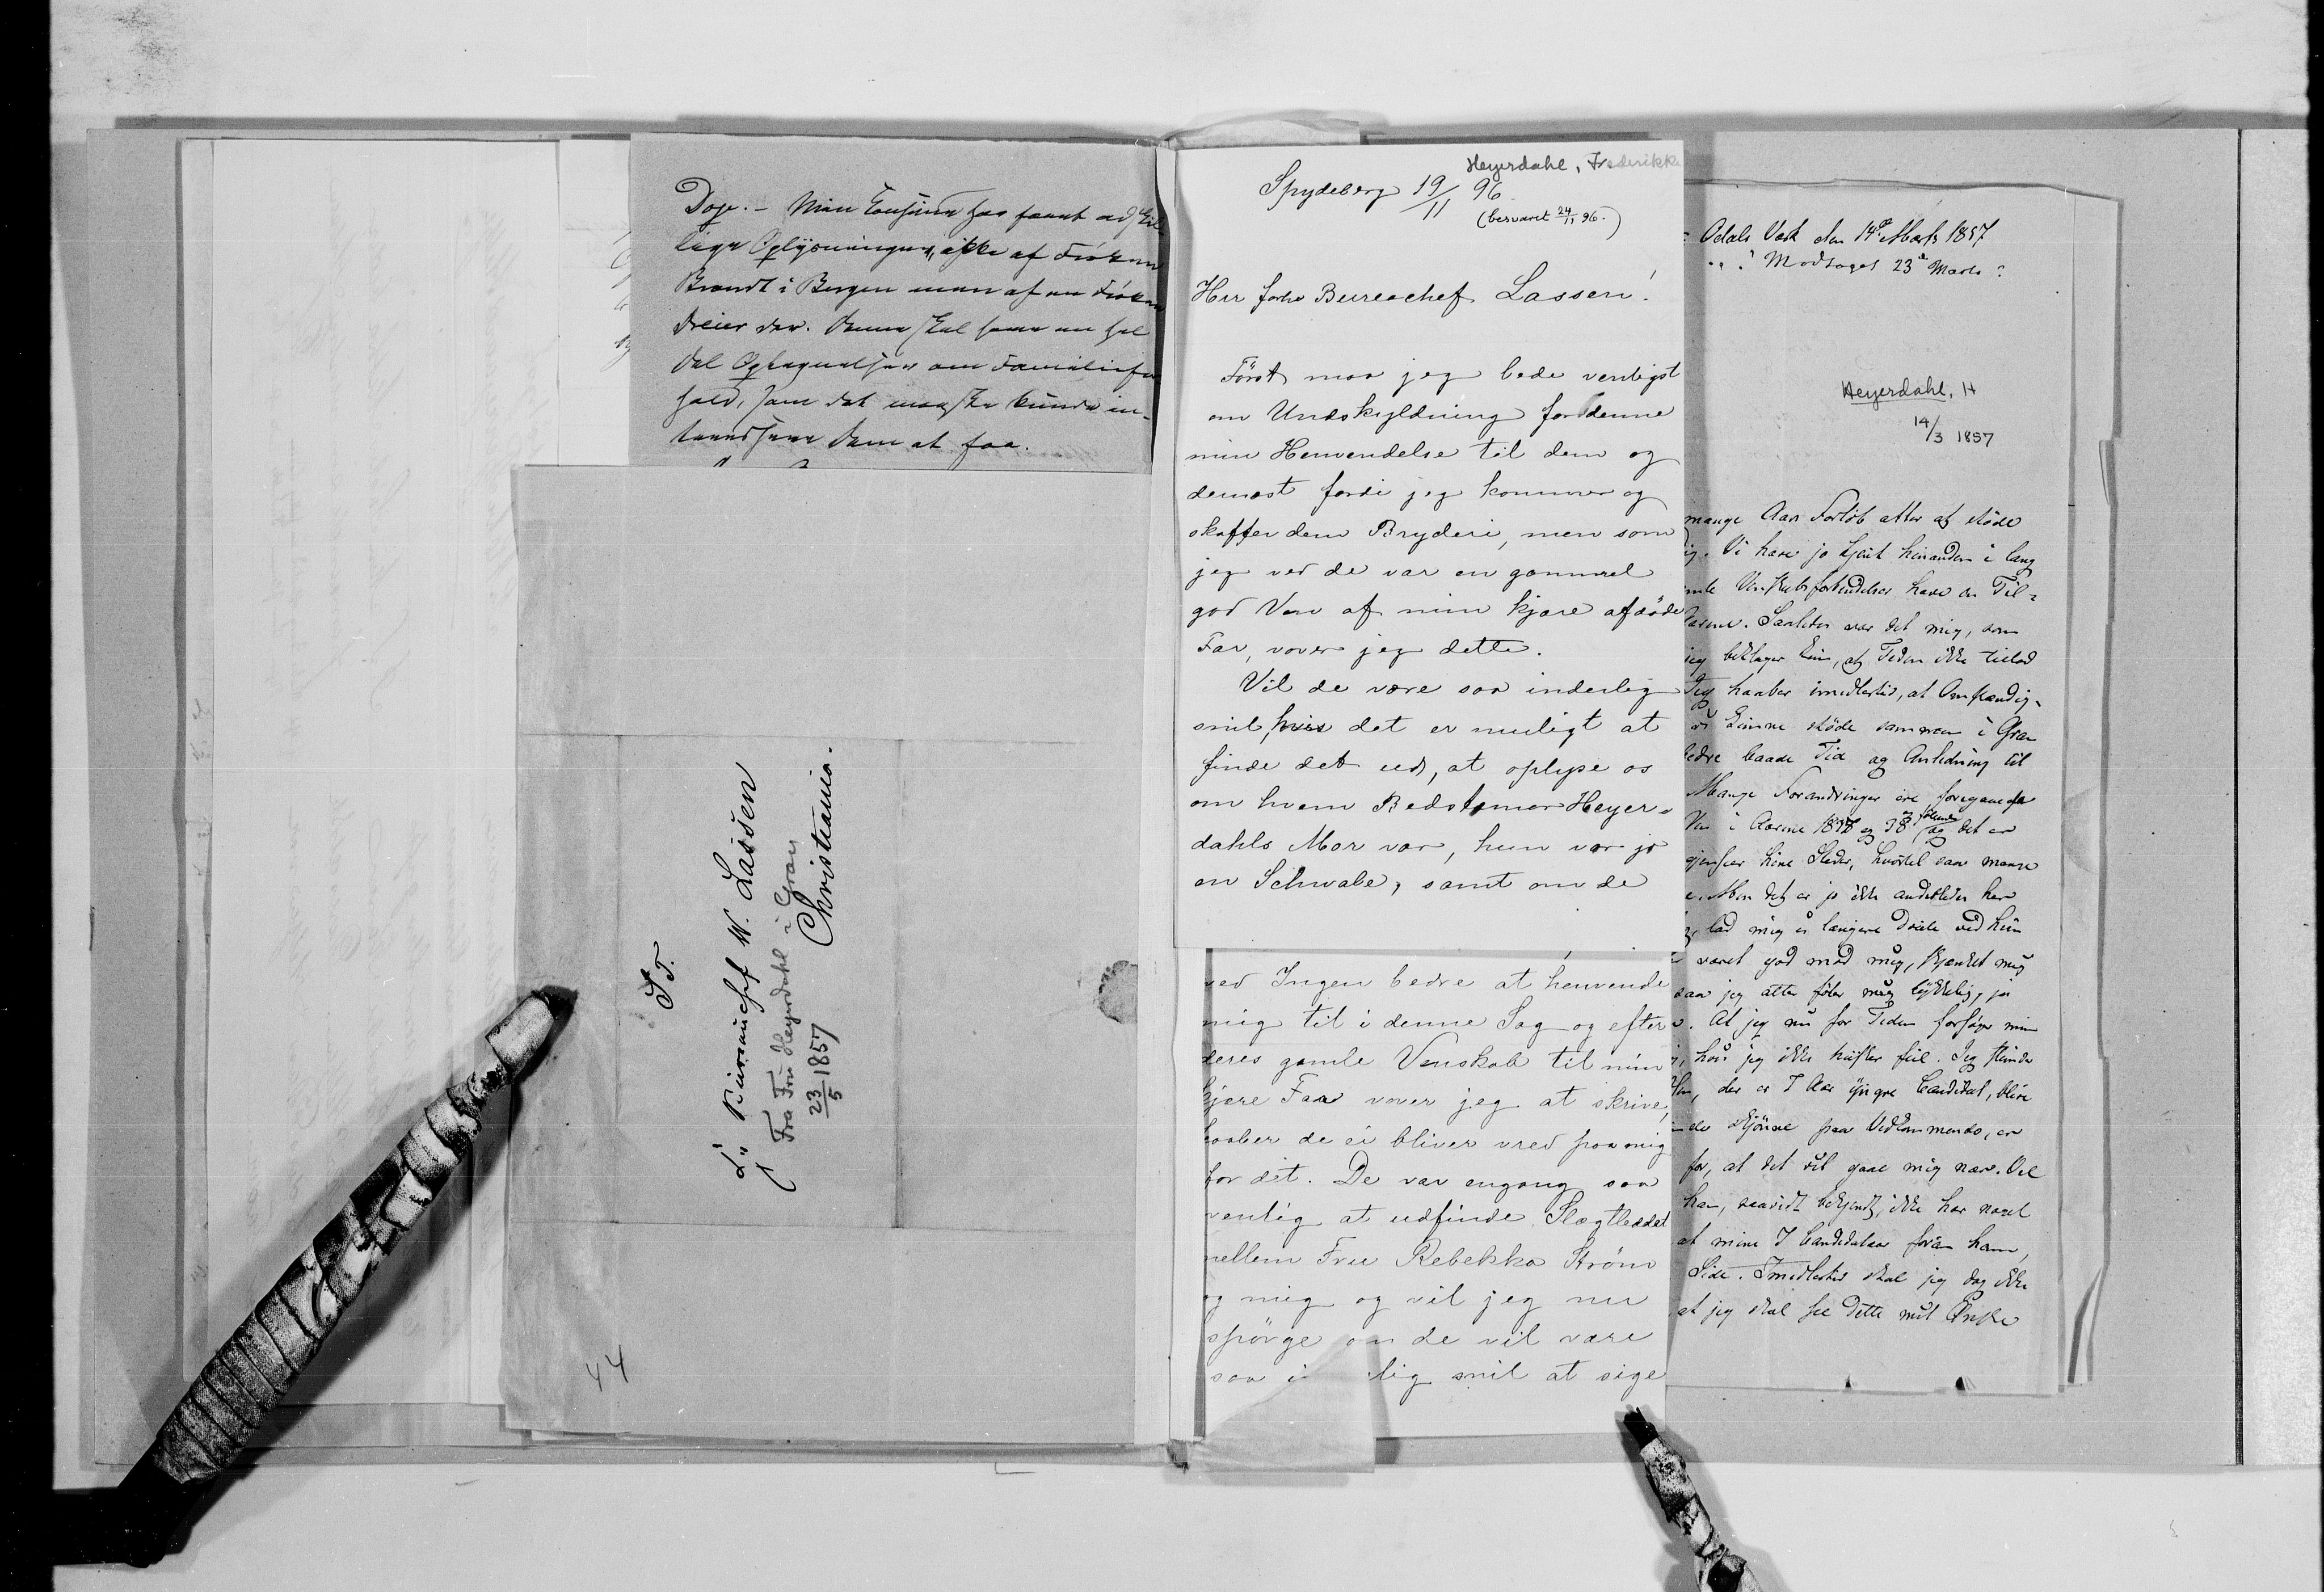 Doge. – Min Cousine har faaet adskil
lige Oplysninger, ikke af Frøken
Brandt i Bergen men af en Frøken
Dreier der. Denne skal have en hel
Del Optegnelser om Familiefor
hold, som det maaske kunde in-
teressere Dem at faa.
S. T.
Hr Bureauchef W. Lassen
(Fra Fru Heyerdahl i Gran
23/5 1857
Christiania.
44
Heyerdahl, Frederikke
Spydeberg 19/11 96
(besvaret 24/11 96.)
Herr forhv Bureachef Lassen!
Først maa jeg bede venligst
om Undskyldning for denne
min Henvendelse til dem og
dernæst fordi jeg kommer og
skaffer dem Bryderi, men som
jeg ved de var en gammel
god Ven af min kjære afdøde
Far, vover jeg dette.
Vil de være saa inderlig
snil, hvis det er muligt at
finde det ud, at oplyse os
om hvem Bedstemor Heyer-
dahls Mor var, hun var jo
en Schwabe, samt om de
ved Ingen bedre at henvende
mig til i denne Sag og efter
deres gamle Venskab til min
kjære Far vover jeg at skrive,
haaber de ei bliver vred paa mig
for dèt. De var engang saa
venlig at udfinde Slægtleddet
mellem Frue Rebekka Strøm
og mig og vil jeg nu
spørge om de vil være
saa i lig snil at sige
Odals Værk den 14de Marts 1857
Modtaget 23de Marts
Heyerdahl, H
14/3 1857
mange Aars Forløb atter at støde
ig. Vi have jo kjent hinanden i lang
mle Venskabsforbindelser have en Til-
arene. Saaledes var det mig, som
jeg beklager kun, at Tiden ikke tillod
Jeg haaber imidlertid, at Omstændig-
vi kunne støde sammen i Gran
bedre baade Tid og Anledning til
Mange Forandringer ere foregaaede
Ven i Aarene 1837 og 38 og det er
gjenseer hine Steder, hvortil saa mange
e. Men det er jo ikke anderledes her
lad mig ei længere dvæle ved hiin
været god mod mig, skjænket mig
saa jeg atter føler mig lykkelig, ja
. At jeg nu for Tiden forsøger min
, hvis jeg ikke husker feil. Jeg
, der er 7 Aar yngre Candidat, blive
nde skjønne paa Vedkommende, er
for, at det vil gaae mig nær. Vel
han, saavidt bekjendt, ikke har noget
at mine 7 Candidataar foran ham,
Side. Imidlertid skal jeg dog ikke
at jeg skal see dette mit Ønske